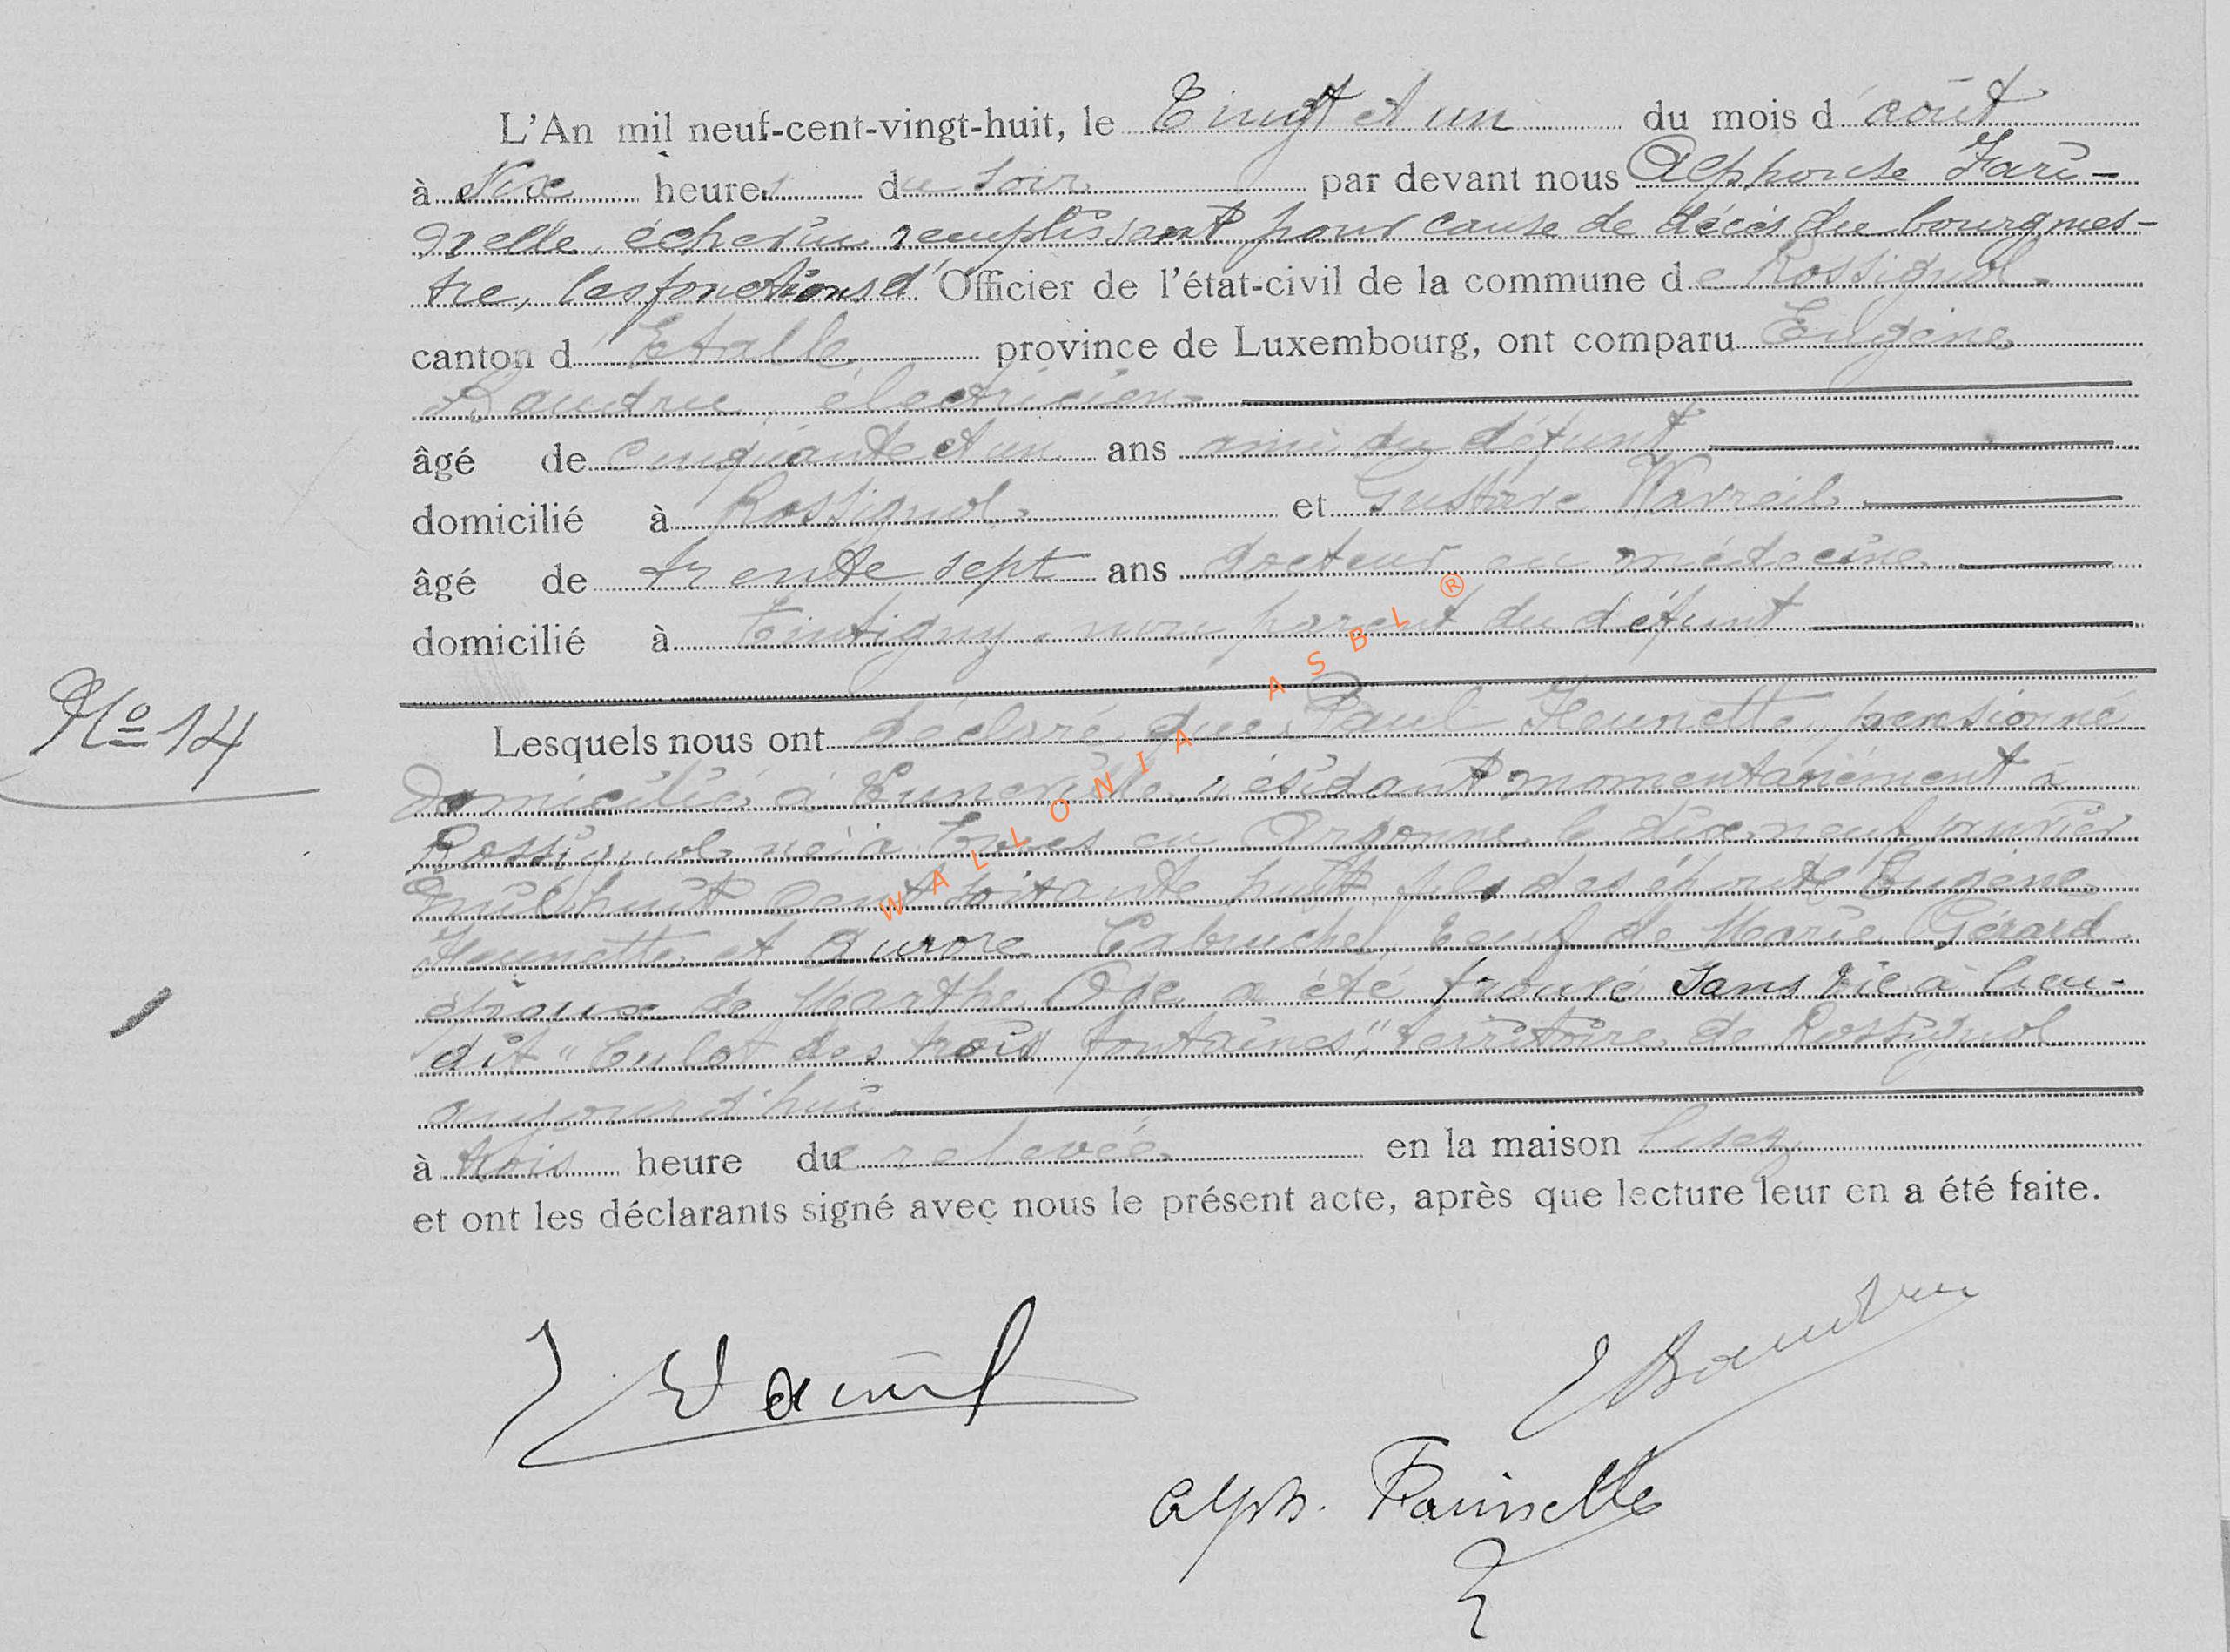 L'An mil neuf-cent-vingt-huit, le Vingt et un du mois d'août
à six heures du soir par devant nous Alphonse Fari-
nelle, échevin remplissant pour cause de décès du bourgmes-
tre, les fonctions d'Officier de l'état-civil de la commune de Rossignol
canton d'Etalle province de Luxembourg, ont comparu Eugène
Baudru, électricien
âgé de cinquante et un ans ami du défunt
domicilié à Rossignol et Gustave
âgé de trente sept ans docteur en médecine
domicilié à Tintigny, non parent du défunt
No 14
Lesquels nous ont déclaré que Paul Hennette, pensionné
domicilié à résidant momentanément à
Rossignol, né à en Argonne, le dix neuf janvier
mil huit cent soixante huit fils des époux Eugène
Hennette et Aurore veuf de Marie Gérard
époux de Marthe a été trouvé sans vie à lieu-
dit "Culot des trois fontaines", territoire de Rossignol
aujourd'hui
à trois heure de relevée en la maison lisez
et ont les déclarants signé avec nous le présent acte, après que lecture leur en a été faite.
E Baudru
Alph. Farinelle
WALLONIA ASBL ®